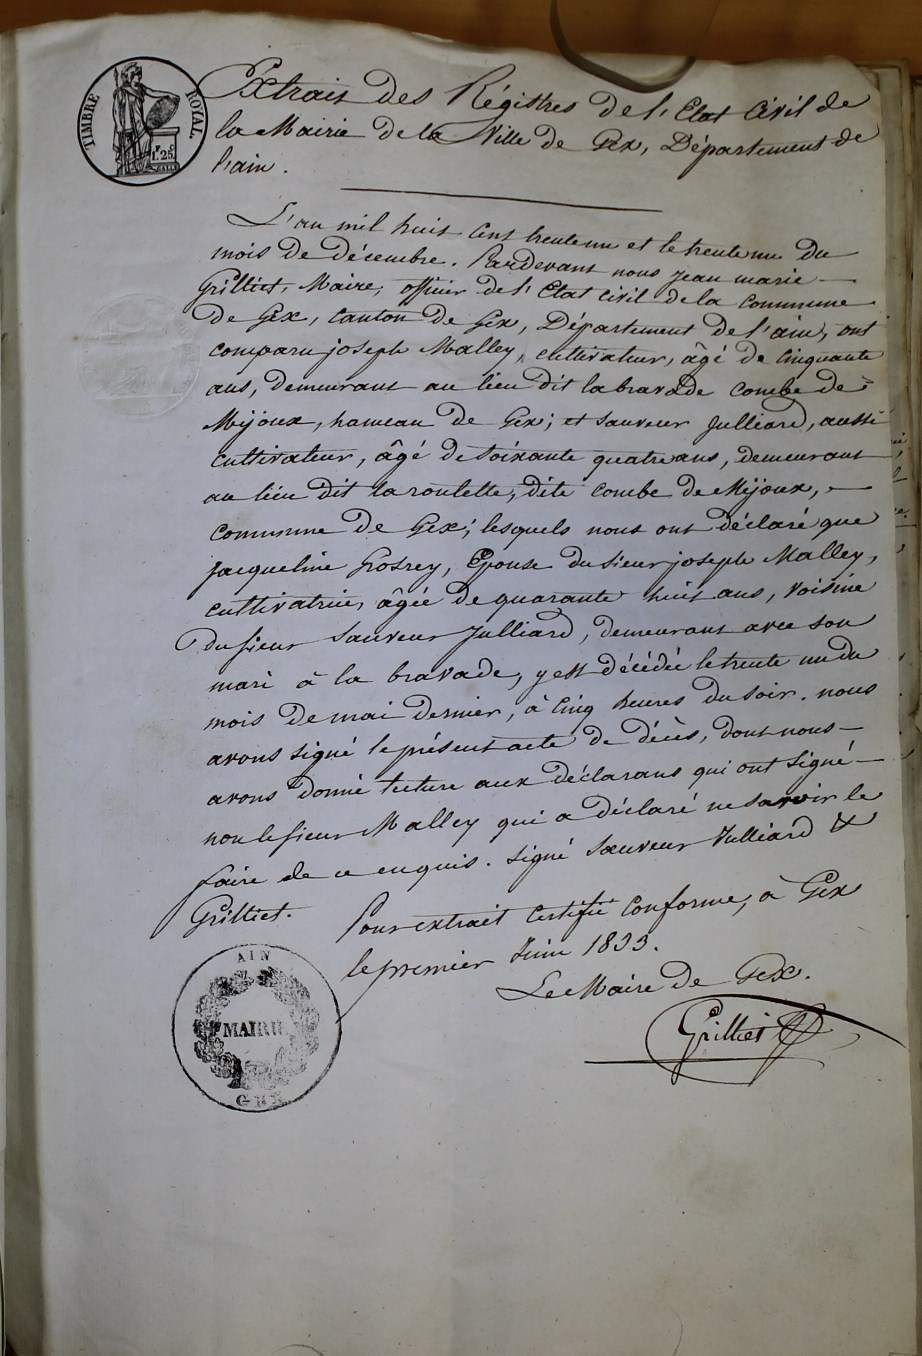 TIMBRE ROYAL
1. 25
Extrait des Régistres de l'Etat Civil de
la Mairie de la Ville de Gex, Département de
l'ain.
L'an mil huit cent trente un et le trente un du
mois de décembre. Pardevant nous jean marie
Grilliet, Maire, officier de l'Etat civil de la commune
de Gex, canton de Gex, Département de l'ain, ont
comparu joseph Malley, cultivateur, âgé de cinquante
ans, demeurant au lieu dit la bravade combe de
Mijoux, hameau de Gex; et sauveur Julliard, aussi
cultivateur, âgé de soixante quatre ans, demeurant
au lieu dit la roulette, dite combe de Mijoux,
commune de Gex; lesquels nous ont déclaré que
jacqueline Grosrey, Epouse du sieur joseph Malley,
cultivatrice, âgée de quarante huit ans, voisine
du sieur sauveur Julliard, demeurant avec son
mari à la bravade, y est décédée le trente un du
mois de mai dernier, à cinq heures du soir. nous
avons signé le présent acte de décès, dont nous
avons donné lecture aux déclarans qui ont signé
non le sieur Malley qui a déclaré ne savoir le
faire de ce enquis. signé sauveur Julliard &
Grilliet.
Pour extrait certifié conforme, à Gex
le premier Juin 1833.
Le Maire de Gex.
Grilliet
AIN
MAIRIE
GEX